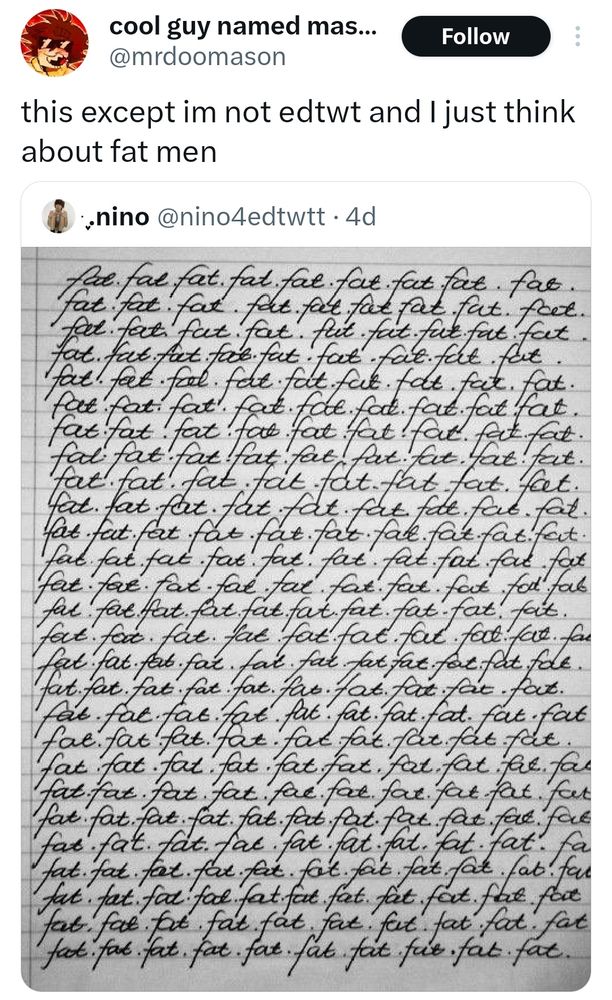 cool guy named mas...
@mrdoomason
Follow
this except im not edtwt and I just think
about fat men
.nino @nino4edtwtt · 4d
fat. fat fat. fat. fat. fat. fat fat. fat.
fat. fat. fat. fat. fat fat fat. fat. fat.
fat. fat. fat. fat. fat. fat. fat fat. fat.
fat. fat. fat. fat. fat. fat. fat. fat. fat.
fat. fat. fat. fat. fat. fat. fat. fat. fat.
fat. fat. fat. fat. fat. fat. fat. fat fat.
fat. fat. fat. fat. fat. fat. fat. fat. fat.
fat. fat. fat. fat. fat. fat. fat. fat. fat.
fat. fat. fat. fat. fat. fat. fat. fat.
fat. fat fat. fat. fat. fat fat. fat. fat.
fat. fat. fat. fat. fat. fat. fat. fat. fat. fat.
fat. fat. fat. fat. fat. fat. fat. fat. fat. fat
fat. fat. fat. fat. fat. fat. fat. fat. fat. fat
fat. fat. fat. fat. fat. fat. fat. fat. fat. fat.
fat. fat. fat. fat. fat. fat. fat. fat. fat. fa
fat. fat. fat. fat. fat. fat. fat. fat. fat. fat. fat.
fat. fat. fat. fat. fat. fat. fat. fat. fat. fat.
fat. fat. fat. fat. fat. fat. fat. fat. fat. fat
fat. fat. fat. fat. fat. fat. fat. fat. fat.
fat. fat. fat. fat. fat. fat. fat. fat. fat. fa
fat. fat. fat. fat. fat. fat. fat. fat. fat. fat
fat. fat. fat. fat. fat. fat. fat. fat. fat. fat. fat
fat. fat. fat. fat. fat. fat. fat. fat. fat. fa
fat. fat. fat. fat. fat. fat. fat. fat. fat. fat. fat
fat. fat. fat. fat. fat. fat. fat. fat. fat. fat. fat
fat. fat. fat. fat. fat. fat. fat. fat. fat. fat
fat. fat. fat. fat. fat. fat. fat. fat. fat. fat.